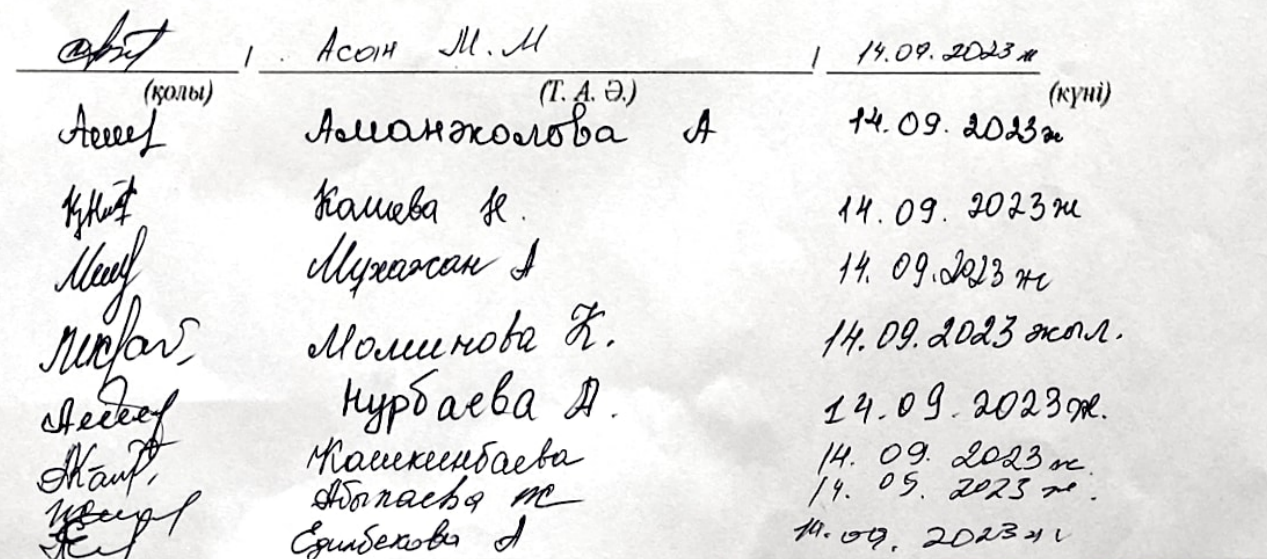 Асан М.М 14.09.2023ж
(қолы) (Т. А. Ә.) (күні)
Аманжолова А 14.09.2023ж
Кашева Н. 14.09.2023ж
Мухажан А 14.09.2023ж
Моминова К. 14.09.2023 жыл.
Нурбаева А. 14.09.2023ж.
Кашкинбаева 14.09.2023ж.
Абылаева Ж 14.09.2023ж.
Едилбекова А 14.09.2023ж